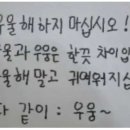 우울해하지 마십시오!
울과 우웅은 한끗 차이입
울해 말고 귀여워지십
다 같이 : 우웅~